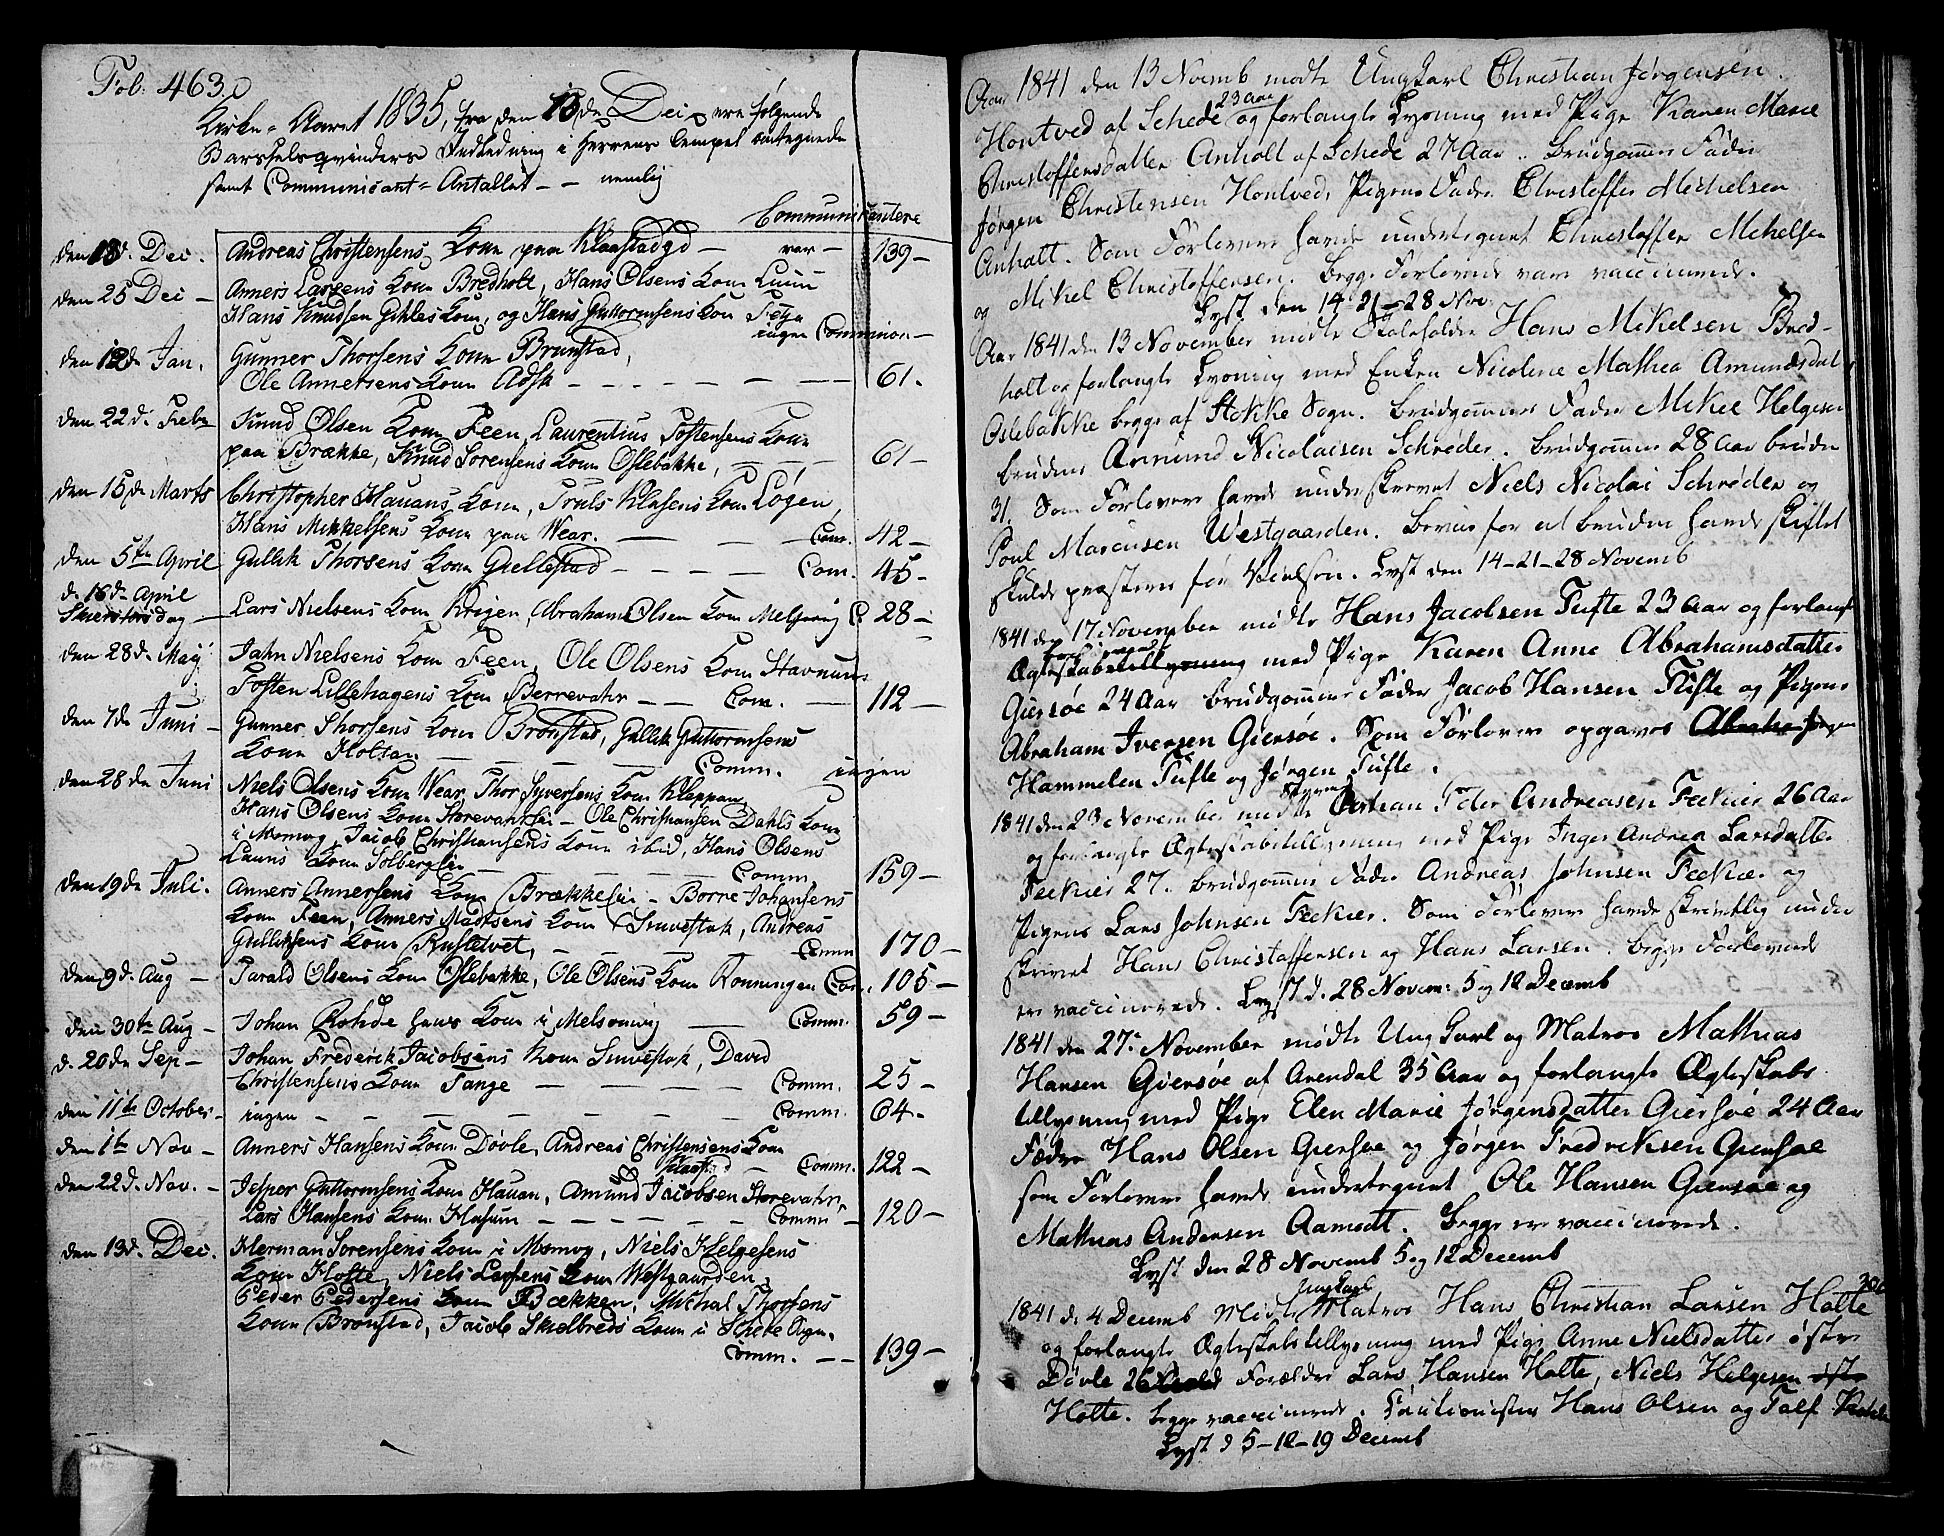 Fol: 463.
Kirke-Aaret 1835, fra den 13de Dec. ere følgende
Barselsqvinders Indledning i Herrens Tempel antegnede
samt Communicant-Antallet - - nemlig
Communicantere
den 13d. Dec. Andreas Christensens Kone paa Klaastadgd - var - 139 -
den 25 Dec - Anners Larsens Kone Bredholt, Hans Olsens Kone Lunn
Hans Knudsen Gihles Kone, og Hans Guttormsens Kone Feja
ingen Communion -
den 12de Jan. Gunner Thorsens Kone Brunstad,
Ole Annersens Kone Adsk - - - - - - 61.
den 22d. Febr. Knud Olsen Kone Feen, Laurentius Tostensens Kone
paa Brække, Knud Sorensens Kone Oslebakke, - - - 61 -
den 15de Marts Christopher Hauans Kone, Truls Klasens Kone Løgen,
Hans Mikkelsens Kone paa Wear. - - - Com. 42 -
den 5te April Gullik Thorsens Kone Gjellestad - - - - Com. 45 -
d. 16de April
Skiertorsdag - Lars Nielsens Kone Krigen, Abraham Olsen Kone Melsomvig C. 28 -
den 28d. May Jahn Nielsens Kone Feen, Ole Olsens Kone Stavnum
Tosten Lillehagens Kone Berrevahr - - Com. - 112 -
den 7de Juni - Gunner Thorsens Kone Brønstad, Gullik Guttormsens
Kone Holtan - - - - Comm. ingen
den 28de Juni Niels Olsens Kone Wear, Thor Syversens Kone Kleppan,
Hans Olsens Kone Storevahrsei - Ole Christiansen Dahls Kone
i Momog, Jacob Christiansens Kone ibid, Hans Olsens
Launs Kone Solbergsei - - - Comm. 159 -
den 19de Juli. Anners Annersens Kone Brækkesei - Borre Johansens
Kone Feen, Anners Madtsens Kone Snuvestok, Andreas
Gulliksens Kone Rustetvet, - - - Comm 170 -
den 9d. Aug - Tarald Olsens Kone Oslebakke, Ole Olsens Kone Ronningen Com. 105 -
den 30te Aug - Johan Rohde hans Kone i Melsomvig - Comm. 59 -
d. 20de Sep - Johan Frederik Jacobsens Kone Snuvestok, David
Christensens Kone Tange - - - - Comm. 25 -
den 11te October - ingen - - - - - - Comm. 64 -
den 1te Nov - Anners Hansens Kone Døvle, Andreas Christensens Kone
Klaastad - Comm. 122 -
den 22d. Nov. - Jesper Guttormsens Kone Hauan, Amund Jacobsen Storevahr,
Lars Hansens Kone Husum - - - - - Comm - 120 -
den 13d. Dec. Herman Sorensens Kone i Momog, Niels Helgesens
Kone Holte, Niels Larsens Kone Westgaarden,
Peder Pedersens Kone Bækken, Michal Thorsens
Kone Brønstad, Jacob Skelbreds Kone i Schede Sogn.
Comm. - - 139 -
Aar 1841 den 13 Novemb mødte Ungkarl Christian Jørgensen
Hontved af Schede 23 Aar og forlangte Lysning med Pige Karen Marie
Christoffersdatter Anholt af Schede 27 Aar. Brudgommens Fader
Jørgen Christensen Hontved, Pigens Fader Christoffer Mechelsen
Anholt. Som Forlovere havde undertegnet Christoffer Mikelsen
og Mikel Christoffersen. Begge Forlovede vare vaccinerede.
Lyst den 14-21-28 Nov.
Aar 1841 den 13 November mødte Staleholder Hans Mikelsen Bred-
holt og forlangte Lysning med Enken Nicoline Mathea Amundsdat
Oslebakke begge af Stokke Sogn. Brudgommens Fader Mikel Helgesen
brudens Amund Nicolaisen Schrøder. Brudgommen 28 Aar bruden
31. Som Forlovere havde underskrevet Niels Nicolai Schrøder og
Poul Marcusen Westgaarden. Beviis for at bruden havde skiftet
skulde præsteres før Vielsen. Lyst den 14-21-28 Novemb
1841 den 17 November mødte Hans Jacobsen Tufte 23 Aar og forlangte
Ægteskabstillysning med Pige Karen Anne Abrahamsdatter
Giersøe 24 Aar Brudgommens Fader Jacob Hansen Tufte og Pigens
Abraham Iversen Giersøe. Som Forlovere opgaves Abraham Jørgen
Hammelen Tufte og Jørgen Tufte.
1841 den 23 November mødte Peder Andreasen Feekier 26 Aar
og forlangte Ægteskabstillysning med Pige Inger Andrea Larsdatter
Feekier 27. Brudgommens Fader Andreas Johnsen Feekier og
Pigens Lars Johnsen Feekier. Som Forlovere havde skriftlig under
skrevet Hans Christoffersen og Hans Larsen. Begge Forlovede
ere vaccinerede. Lyst d. 28 Novem. 5 og 12 Decemb
1841 den 27. November mødte Ung Karl og Matros Mathias
Hansen Giersøe af Arendal 35 Aar og forlangte Ægteskabs
tillysning med Pige Elen Marie Jørgensdatter Giersøe 24 Aar
Fædre Hans Olsen Giersøe og Jørgen Fredriksen Giersøe
som Forlovere havde undertegnet Ole Hansen Giersøe og
Mathias Andersen Aamodt. Begge ere vaccinerede.
Lyst den 28 Novemb 5 og 12 Decemb
1841 d. 4 Decemb Mødte Ungkarl Matros Hans Christian Larsen Holte
og forlangte Ægteskabstillysning med Pige Anne Nielsdatter østre
Døvle 26 Forældre Lars Hansen Holte, Niels Helgesen østre
Holte. Begge vaccinerede. Cautionister Hans Olsen og Tolf
Lyst d 5-12-19 Decemb